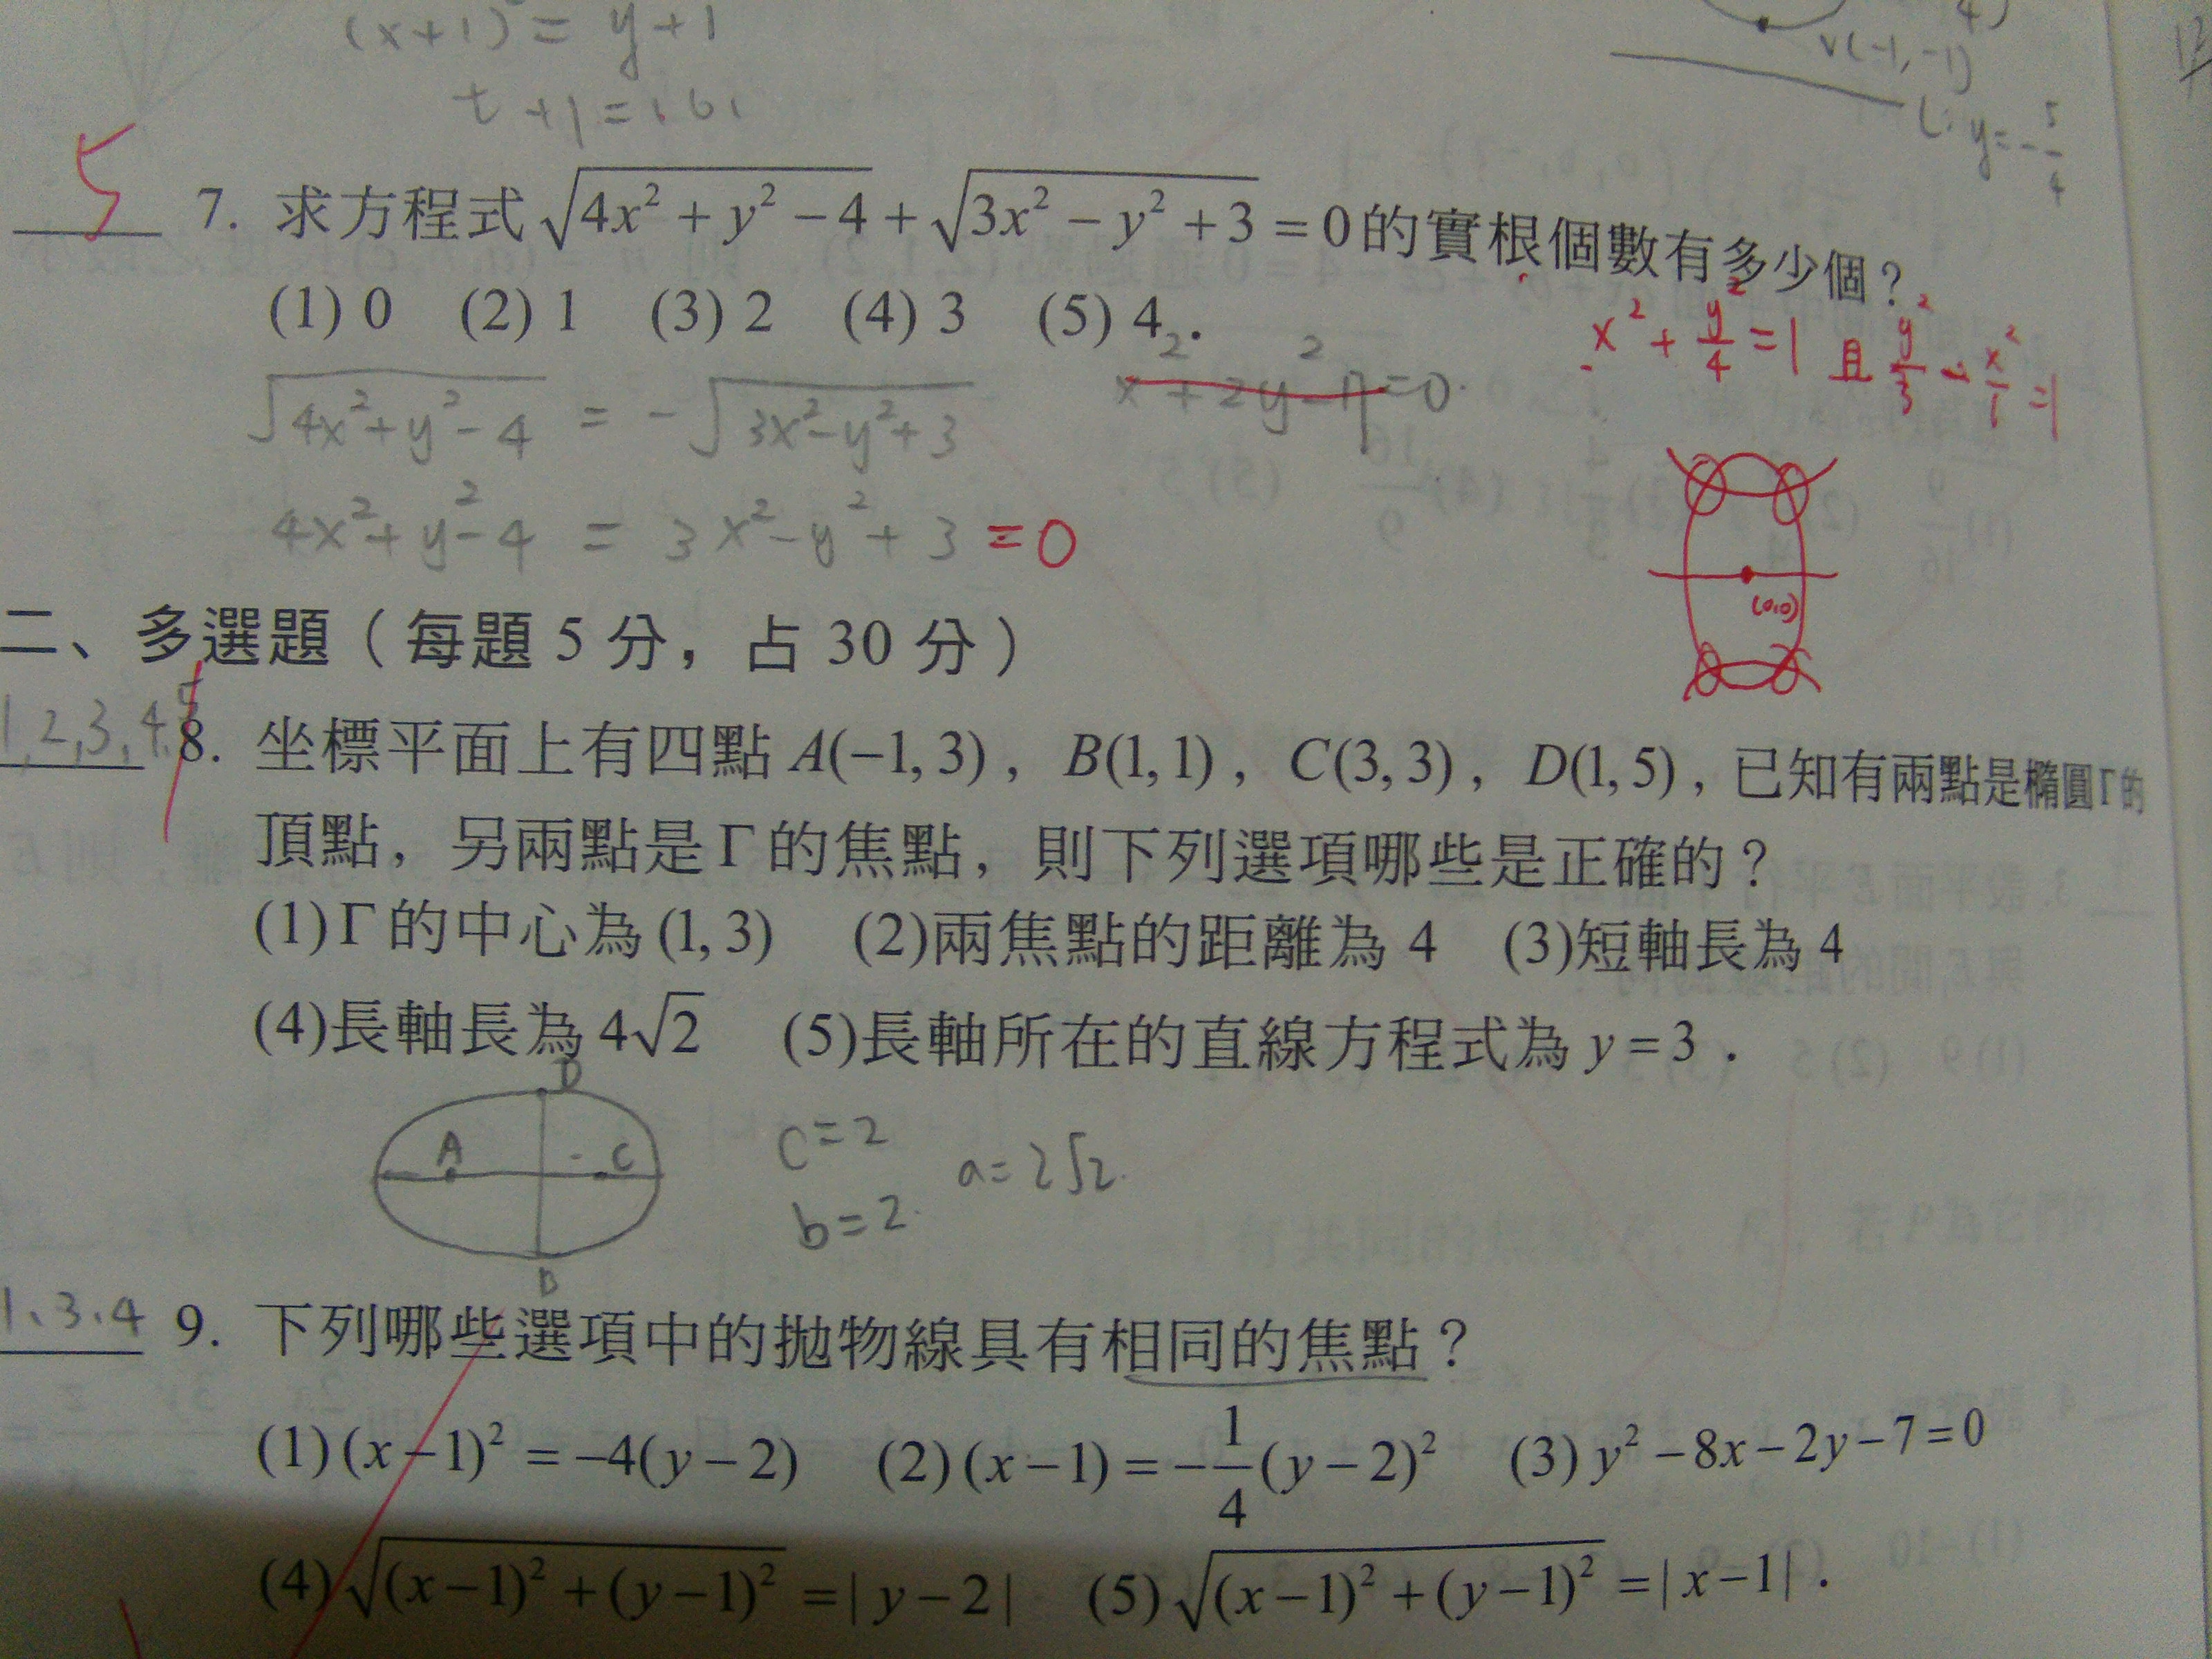 (x+1)² = y+1
4)
V(-1,-1)
L: y=-5/4
5
7. 求方程式√(4x²+y²-4)+√(3x²-y²+3)=0的實根個數有多少個？
(1) 0 (2) 1 (3) 2 (4) 3 (5) 4．
x²+y²/4=1 且 y²/3-x²/1=1
√(4x²+y²-4) = -√(3x²-y²+3)
4x²+y²-4 = 3x²-y²+3 =0
(0,0)
二、多選題（每題 5 分，占 30 分）
1,2,3,4,5
8. 坐標平面上有四點 A(−1,3)，B(1,1)，C(3,3)，D(1,5)，已知有兩點是橢圓Γ的
頂點，另兩點是Γ的焦點，則下列選項哪些是正確的？
(1)Γ的中心為(1,3) (2)兩焦點的距離為 4 (3)短軸長為 4
(4)長軸長為 4√2 (5)長軸所在的直線方程式為 y=3．
D
A C
B
c=2
b=2
a=2√2
1、3、4
9. 下列哪些選項中的拋物線具有相同的焦點？
(1)(x−1)²=−4(y−2) (2)(x−1)=−1/4(y−2)² (3)y²−8x−2y−7=0
(4)√((x−1)²+(y−1)²)=|y−2| (5)√((x−1)²+(y−1)²)=|x−1|．